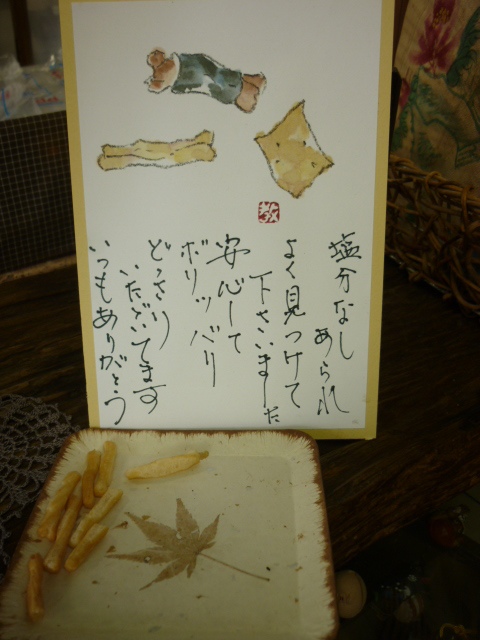 塩分なし
あられ
よく見つけて
下さいました
安心して
ボリッバリ
どっさり
いただいてます
いつもありがとう
教